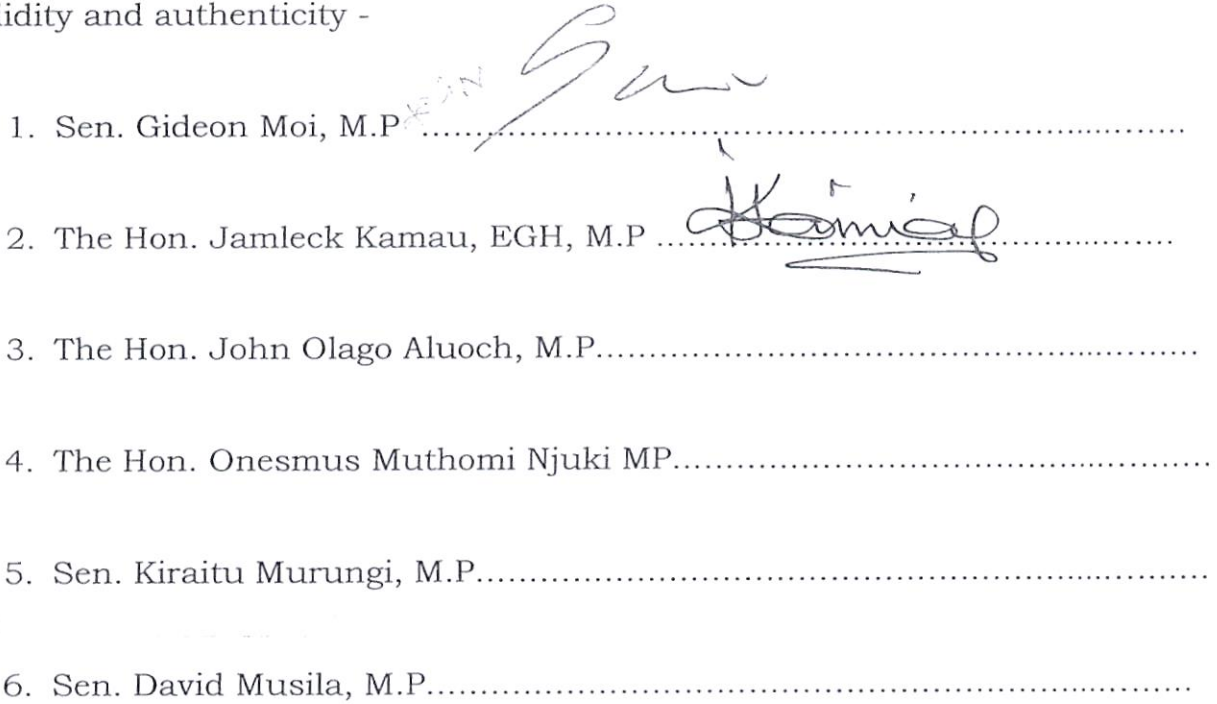 idity and authenticity -
1. Sen. Gideon Moi, M.P ................................................................
2. The Hon. Jamleck Kamau, EGH, M.P ................................................................
3. The Hon. John Olago Aluoch, M.P................................................................
4. The Hon. Onesmus Muthomi Njuki MP................................................................
5. Sen. Kiraitu Murungi, M.P................................................................
6. Sen. David Musila, M.P................................................................